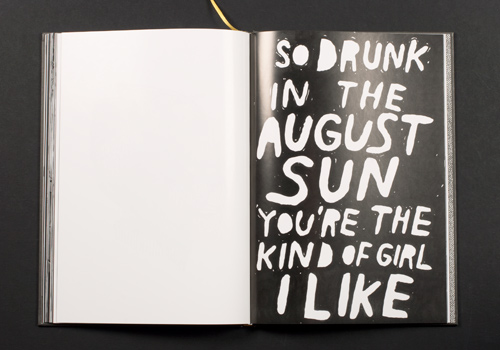 SO DRUNK
IN THE
AUGUST
SUN
YOU'RE THE
KIND OF GIRL
I LIKE